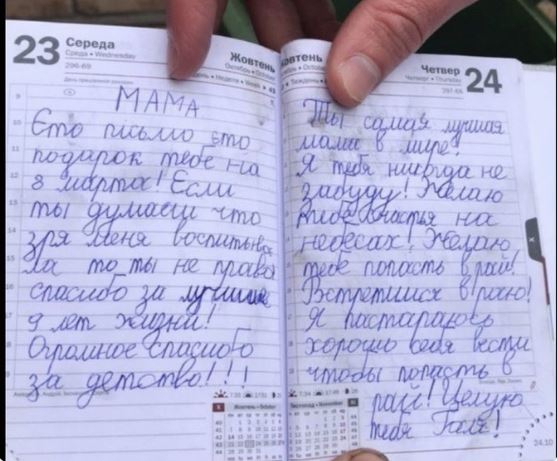 23 Середа
Среда • Wednesday
296-69
Жовтень
МАМА
Єто пісьмо єто
подарок тебе на
8 марта! Если
ты думаеш что
зря меня воспитыва
ла то ты не права
спасибо за лучшие
9 лет жизни!
Огромное спасибо
за детство!!!
Четвер 24
Четверг • Thursday
297-68
Ты самая лучшая
мама в мире!
Я тебя никогда не
забуду! Желаю
тебе счастья на
небесах! Желаю
тебе попасть в рай!
Встретимся в раю!
Я постараюсь
хорошо себя вести
чтобы попасть в
рай! Целую
тебя
24.10